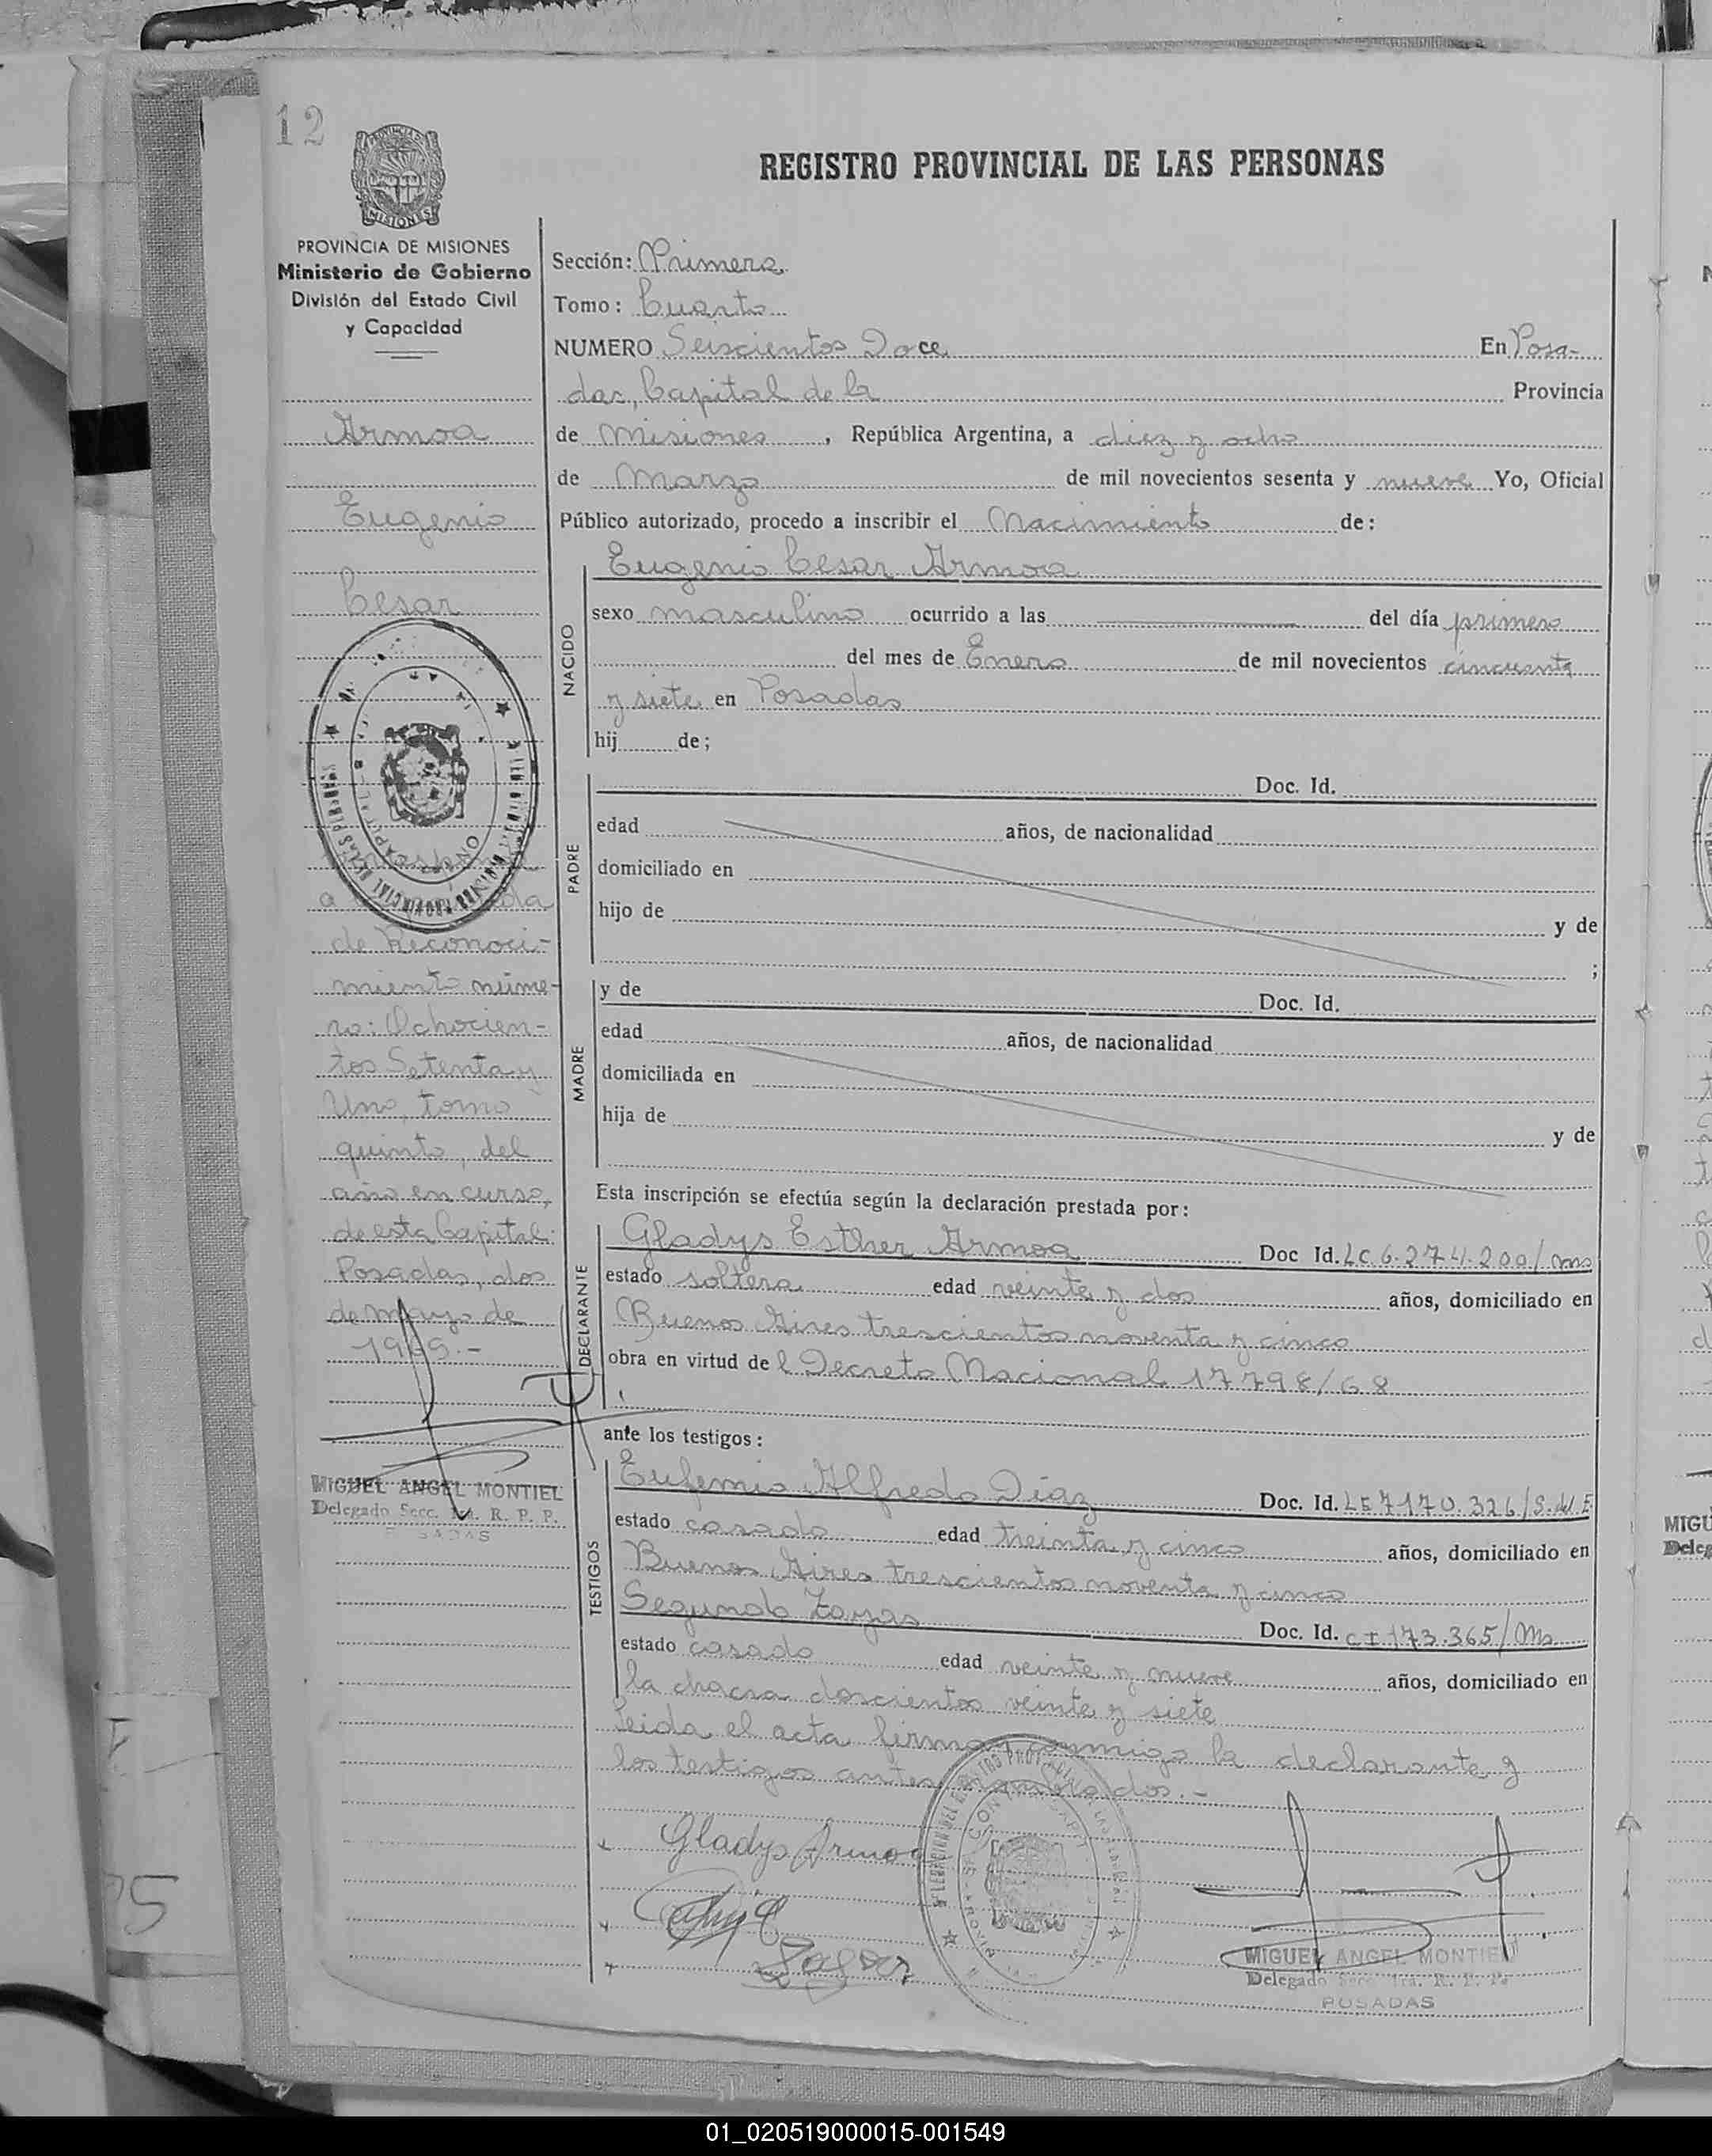 12
PROVINCIA DE MISIONES
Ministerio de Gobierno
División del Estado Civil
y Capacidad
Armoa
Eugenio
Cesar
a
de Reconoci-
miento núme-
ro: Ochocien-
tos Setenta y
Uno, tomo
quinto, del
año en curso,
de esta Capital:
Posadas, dos
de mayo de
1969.-
MIGUEL ANGEL MONTIEL
Delegado Secc. 1ra. R. P. P.
POSADAS
REGISTRO PROVINCIAL DE LAS PERSONAS
Sección: Primera
Tomo: Cuarto
NUMERO Seiscientos Doce En Posa-
das, Capital de la Provincia
de Misiones, República Argentina, a diez y ocho
de Marzo de mil novecientos sesenta y nueve Yo, Oficial
Público autorizado, procedo a inscribir el Nacimiento de:
Eugenio Cesar Armoa
NACIDO
sexo masculino ocurrido a las del día primero
del mes de Enero de mil novecientos cincuenta
y siete en Posadas
hij de;
PADRE
Doc. Id.
edad años, de nacionalidad
domiciliado en
hijo de y de
;
MADRE
y de Doc. Id.
edad años, de nacionalidad
domiciliada en
hija de y de
Esta inscripción se efectúa según la declaración prestada por:
DECLARANTE
Gladys Esther Armoa Doc Id. LC 6.274.200/ms
estado soltera edad veinte y dos años, domiciliado en
Buenos Aires trescientos noventa y cinco
obra en virtud de l Decreto Nacional 17798/68
ante los testigos:
TESTIGOS
Eufemio Alfredo Diaz Doc. Id. LE 7170.326/S.del E
estado casado edad treinta y cinco años, domiciliado en
Buenos Aires trescientos noventa y cinco
Segundo Zayas Doc. Id. CI 173.365/Ms
estado casado edad veinte y nueve años, domiciliado en
la chacra doscientos veinte y siete
Leida el acta firman conmigo la declarante y
los testigos antes nombrados.-
Gladys Armoa
MIGUEL ANGEL MONTIEL
Delegado Secc. 1ra. R. P. P.
POSADAS
01_020519000015-001549